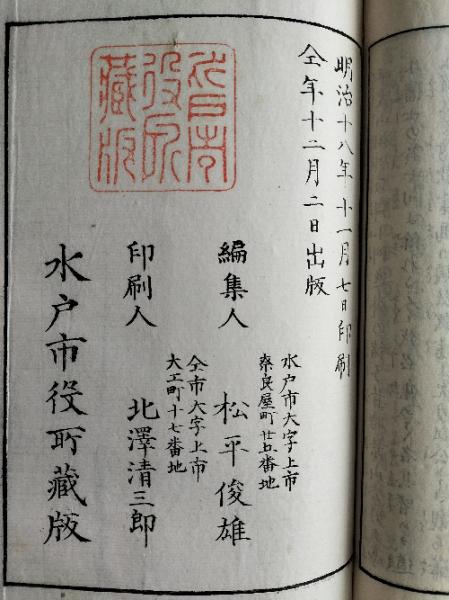 明治廿八年十一月七日印刷
仝年十二月二日出版
水戸市大字上市
奈良屋町廿五番地
編集人 松平俊雄
仝市大字上市
大工町十七番地
印刷人 北澤清三郎
水戸市役所藏版
市
役所
藏版